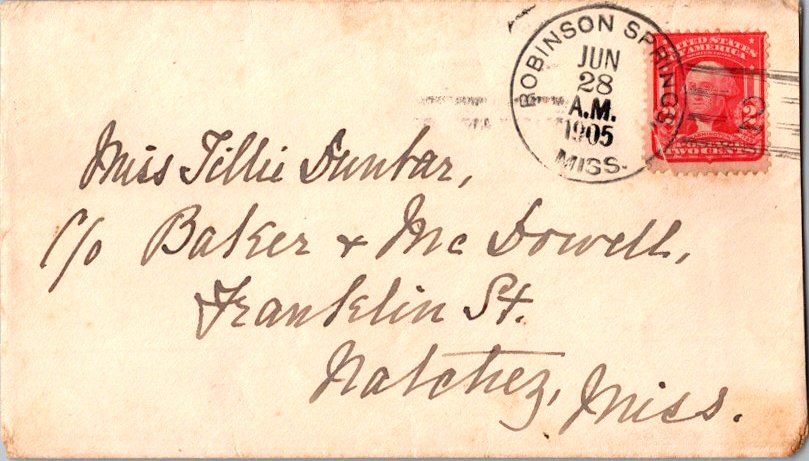 ROBINSON SPRINGS
JUN
28
A.M.
1905
MISS.
UNITED STATES
OF AMERICA
2
TWO CENTS
Miss Tillie Dunbar,
c/o Baker & Mc Dowell,
Franklin St.
Natchez, Miss.